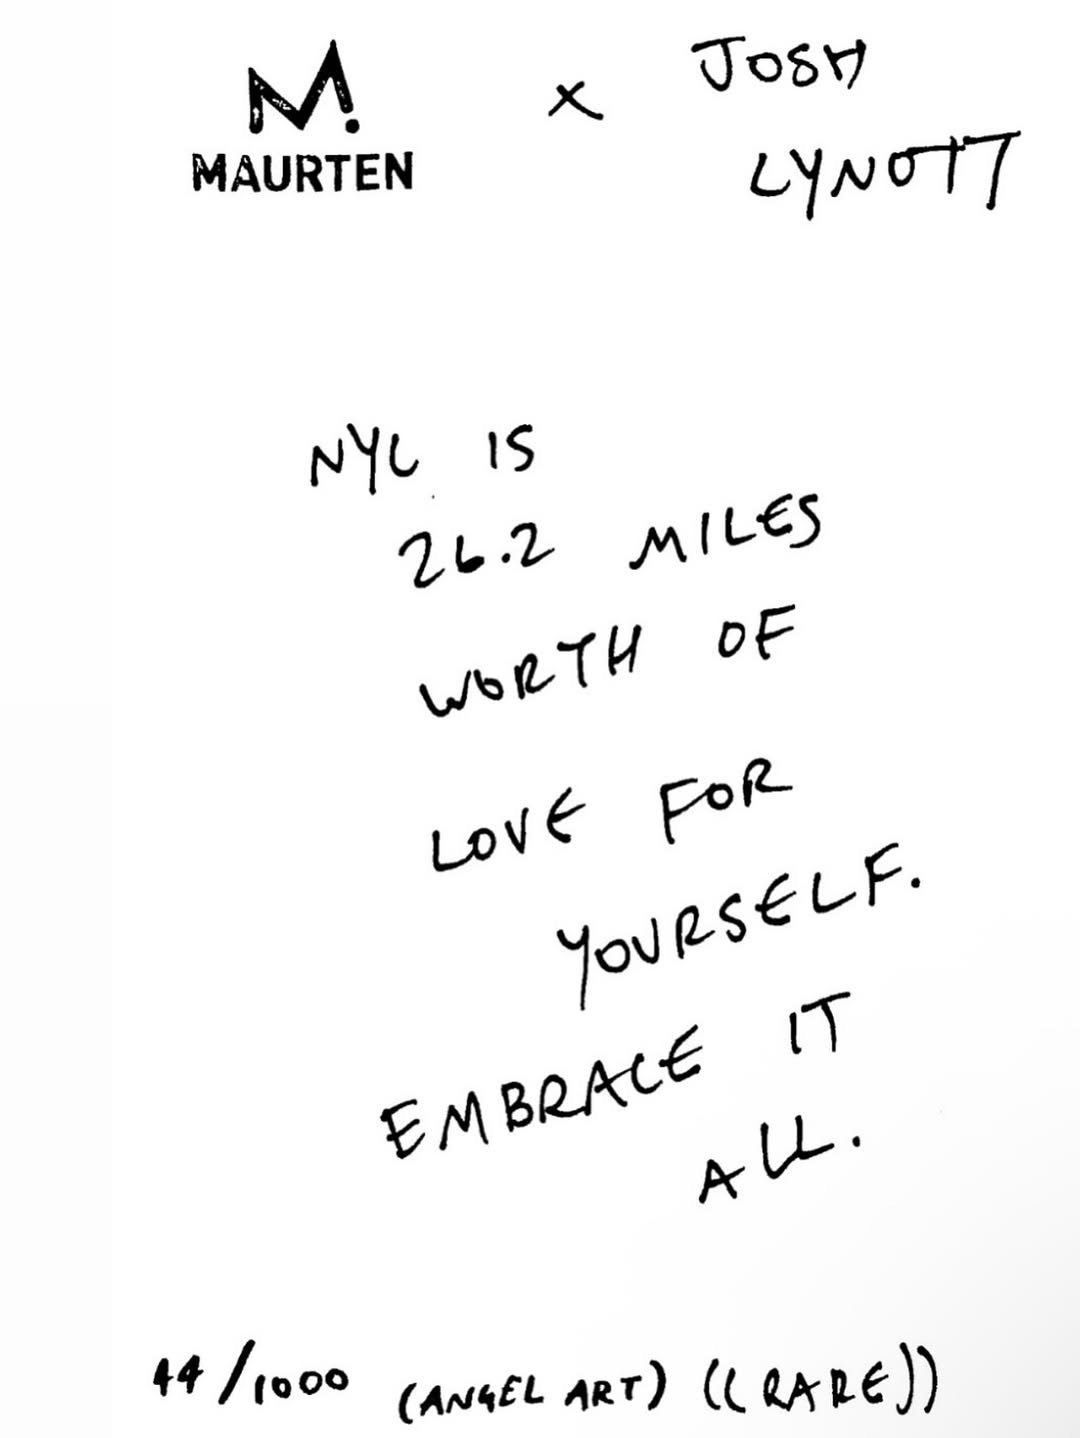 M.
MAURTEN x JOSH
LYNOTT
NYC IS
26.2 MILES
WORTH OF
LOVE FOR
YOURSELF.
EMBRACE IT
ALL.
44/1000 (ANGEL ART) ((RARE))